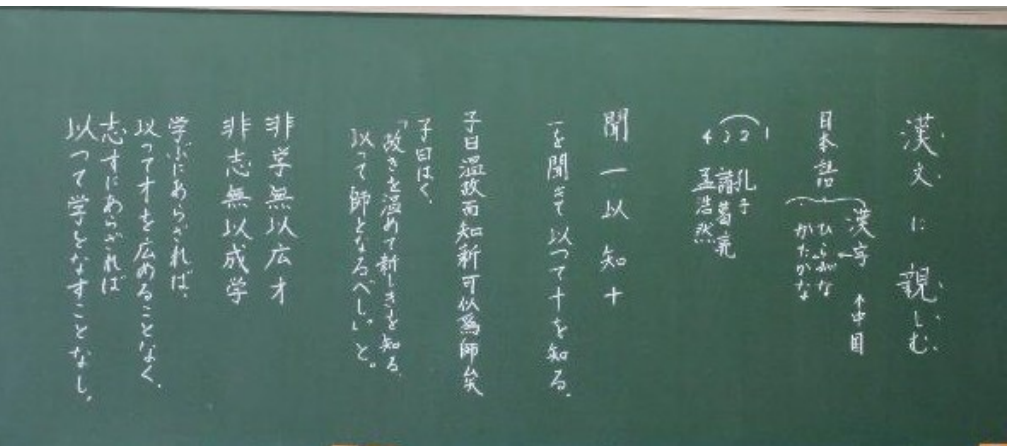 漢文に親しむ
日本語
漢字
ひらがな
かたかな
↑中国
1 孔子
2
3 諸葛亮
4 孟浩然
聞一以知十
一を聞きて以つて十を知る。
子曰温故而知新可以爲師矣
子曰はく、
「故きを温めて新しきを知る
以つて師となるべし。」と。
非学無以広才
非志無以成学
学ぶにあらざれば、
以つて才を広めることなく、
志すにあらざれば
以つて学をなすことなし。